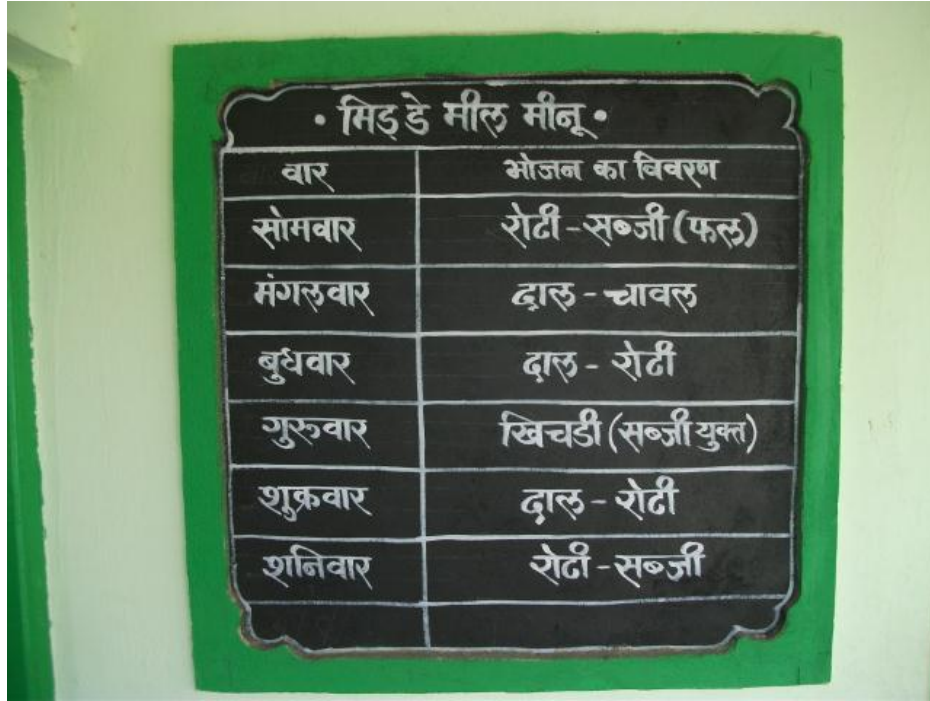 • मिड डे मील मीनू •
वार भोजन का विवरण
सोमवार रोटी - सब्जी (फल)
मंगलवार दाल - चावल
बुधवार दाल - रोटी
गुरुवार खिचडी (सब्जी युक्त)
शुक्रवार दाल - रोटी
शनिवार रोटी - सब्जी